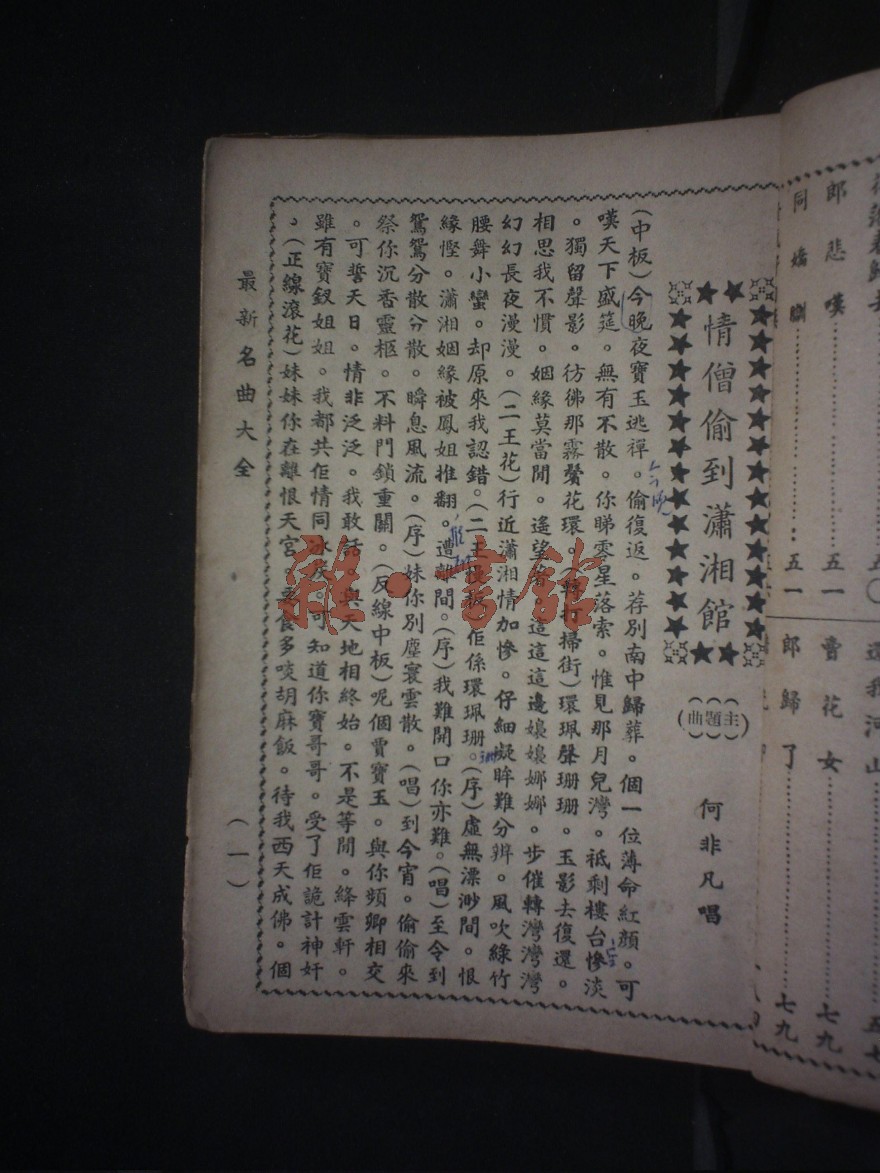 情僧偷到瀟湘館
(主題曲)
何非凡唱
(中板)今晚夜寶玉逃禪。偷復返。荐別南中歸葬。個一位薄命紅顏。可
嘆天下盛筵。無有不散。你睇零星落索。惟見那月兒灣。祗剩樓台慘淡
。獨留聲影。彷彿那霧鬢花環。(轉打掃街)環珮聲珊珊。玉影去復還。
相思我不慣。姻緣莫當閒。遙望着。這這這邊嬝嬝娜娜。步催轉灣灣灣
幻幻長夜漫漫。(二王花)行近瀟湘情加慘。仔細凝眸難分辨。風吹綠竹
腰舞小蠻。却原來我認錯。(二王慢板)佢係環珮珊。(序)虛無漂渺間。恨
緣慳。瀟湘姻緣被鳳姐推翻。遭離間。(序)我難開口你亦難。(唱)至令到
鴛鴦分散分散。瞬息風流。(序)妹你別塵寰雲散。(唱)到今宵。偷偷來
祭你沉香靈柩。不料門鎖重關。(反線中板)呢個賈寶玉。與你頻卿相交
。可誓天日。情非泛泛。我敢話。與天地相終始。不是等閒。絳雲軒。
雖有寶釵姐姐。我都共佢情同冰炭。可知道你寶哥哥。受了佢詭計神奸
。(正線滾花)妹妹你在離恨天宮。要食多啖胡麻飯。待我西天成佛。個
最新名曲大全
(一)
郎悲嘆
五一
同
五一
五〇
還我河山
五七
賣花女
七九
郎歸了
七九
雜·書館